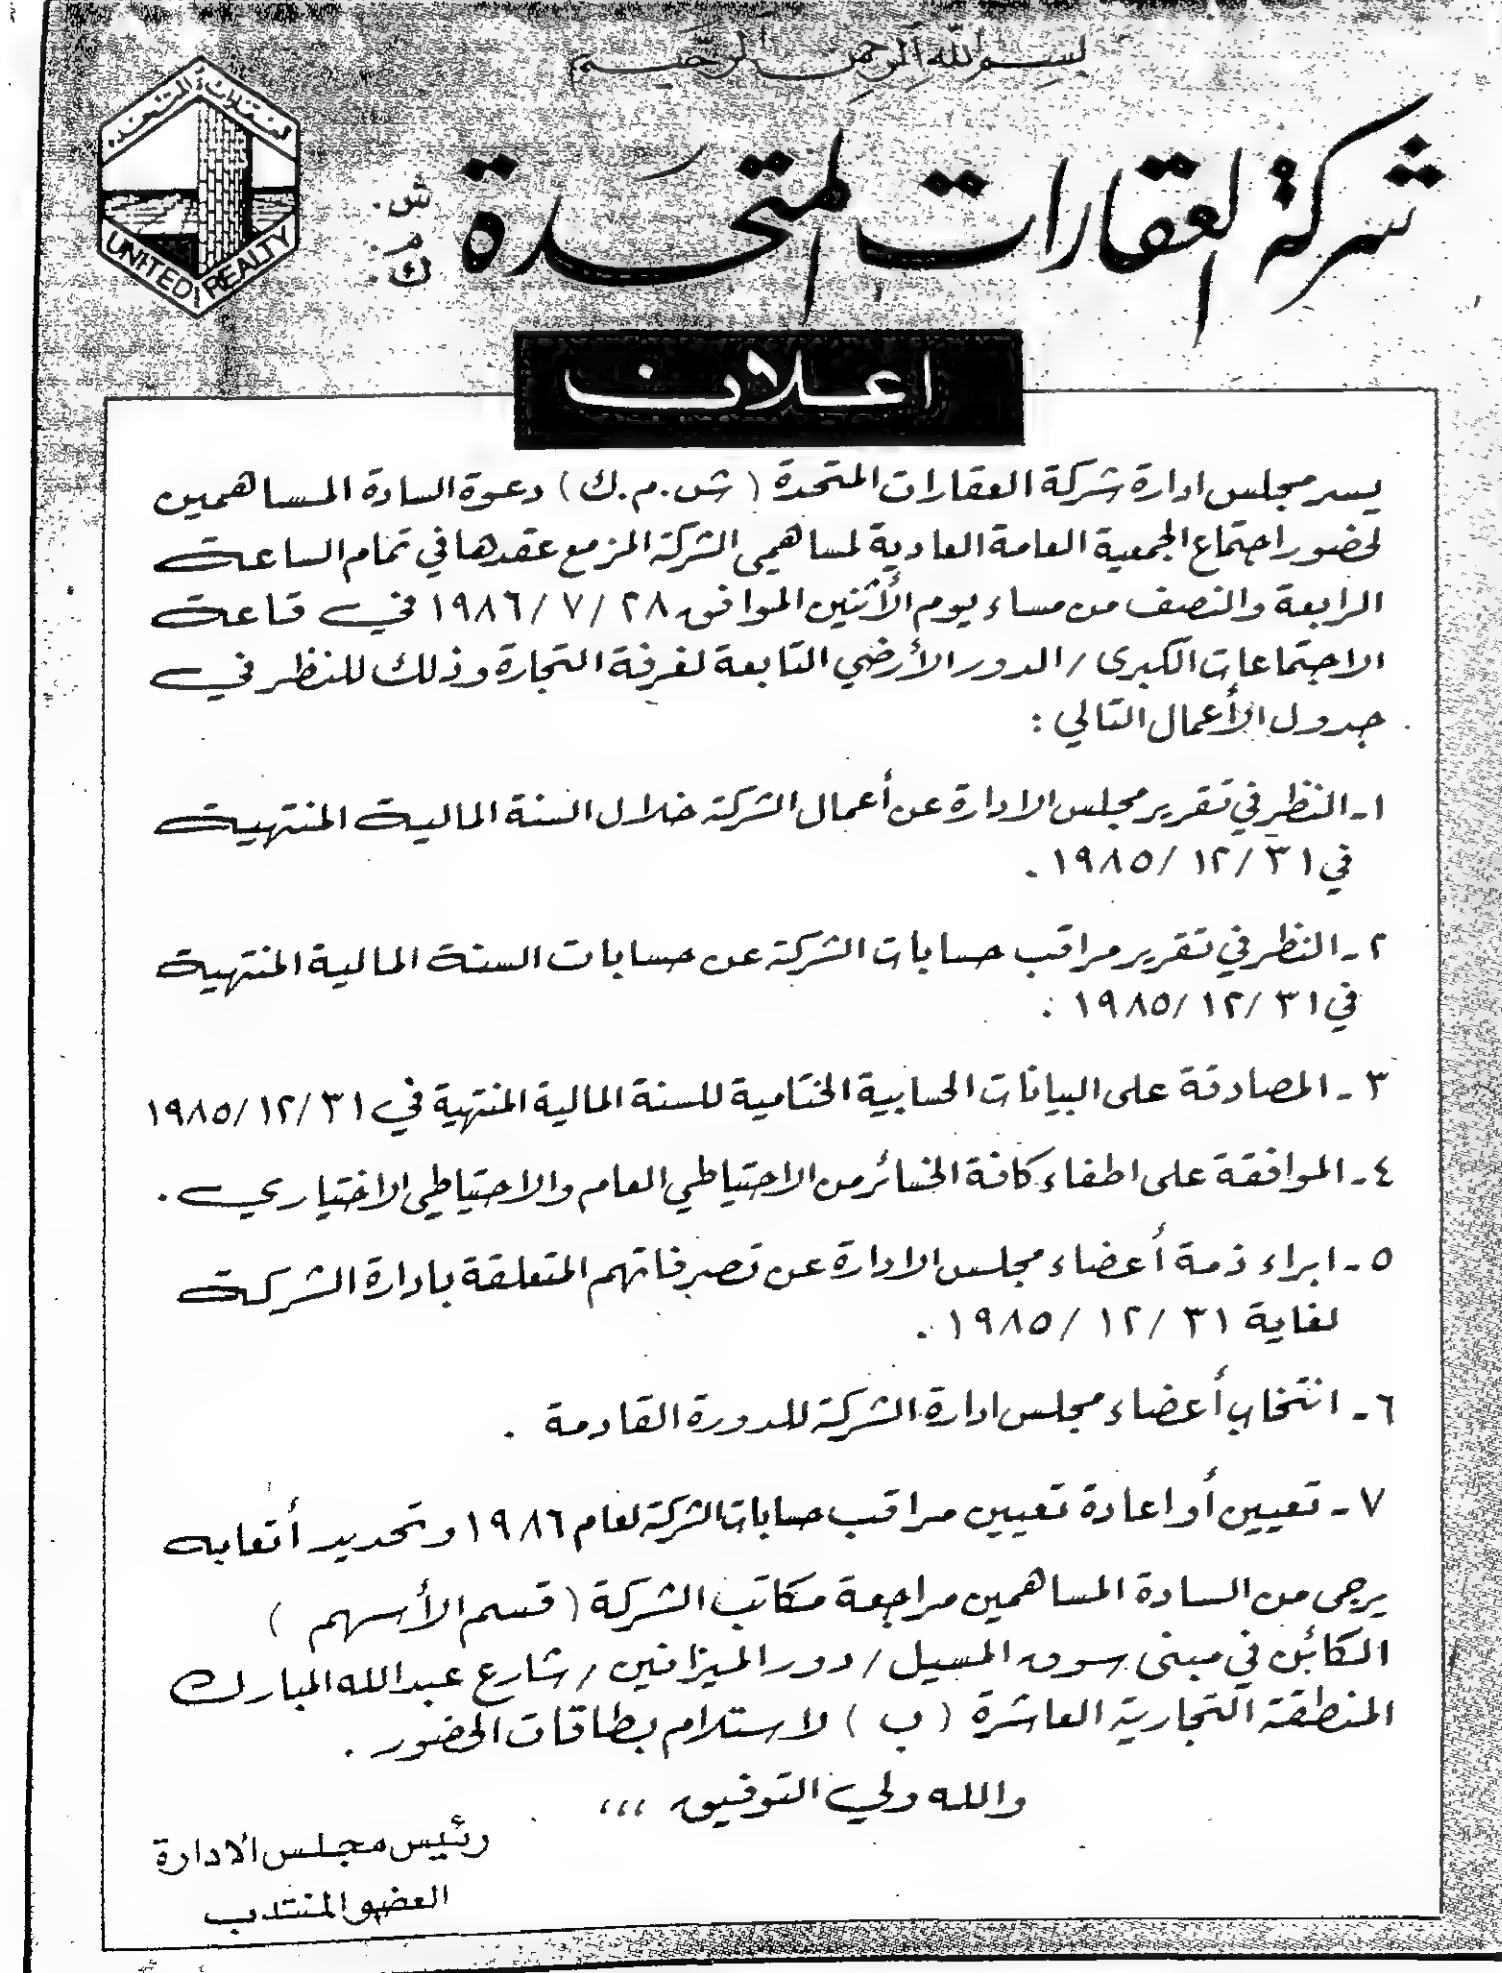 بسم الله الرحمن الرحيم
العقارات المتحدة
UNITED REALTY
شركة العقارات المتحدة
ش.
م.
ك.
اعلان
يسر مجلس ادارة شركة العقارات المتحدة ( ش.م.ك ) دعوة السادة المساهمين
لحضور اجتماع الجمعية العامة العادية لمساهمي الشركة المزمع عقدها في تمام الساعة
الرابعة والنصف من مساء يوم الأثنين الموافق ٢٨ /٧ /١٩٨٦ في قاعة
الاجتماعات الكبرى / الدور الأرضي التابعة لغرفة التجارة وذلك للنظر في
جدول الأعمال التالي :
١ـ النظر في تقرير مجلس الادارة عن أعمال الشركة خلال السنة المالية المنتهية
في ٣١ /١٢ /١٩٨٥ .
٢ـ النظر في تقرير مراقب حسابات الشركة عن حسابات السنة المالية المنتهية
في ٣١ /١٢ /١٩٨٥ .
٣ـ المصادقة على البيانات الحسابية الختامية للسنة المالية المنتهية في ٣١ /١٢ /١٩٨٥
٤ـ الموافقة على اطفاء كافة الخسائر من الاحتياطي العام والاحتياطي الاختياري .
٥ـ ابراء ذمة أعضاء مجلس الادارة عن تصرفاتهم المتعلقة بادارة الشركة
لغاية ٣١ /١٢ /١٩٨٥ .
٦ـ انتخاب أعضاء مجلس ادارة الشركة للدورة القادمة .
٧ـ تعيين أو اعادة تعيين مراقب حسابات الشركة لعام ١٩٨٦ وتحديد أتعابه
يرجى من السادة المساهمين مراجعة مكاتب الشركة ( قسم الأسهم )
الكائن في مبنى سوق المسيل / دور الميزانين / شارع عبدالله المبارك
المنطقة التجارية العاشرة ( ب ) لاستلام بطاقات الحضور .
والله ولي التوفيق ،،،
رئيس مجلس الادارة
العضو المنتدب